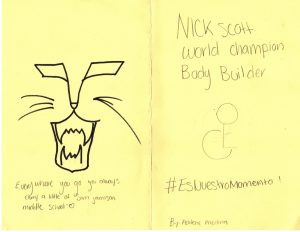 Everywhere you go you always
carry a little of
middle school
NICK Scott
world champion
Body Builder
#EsNuestroMomento!
By: